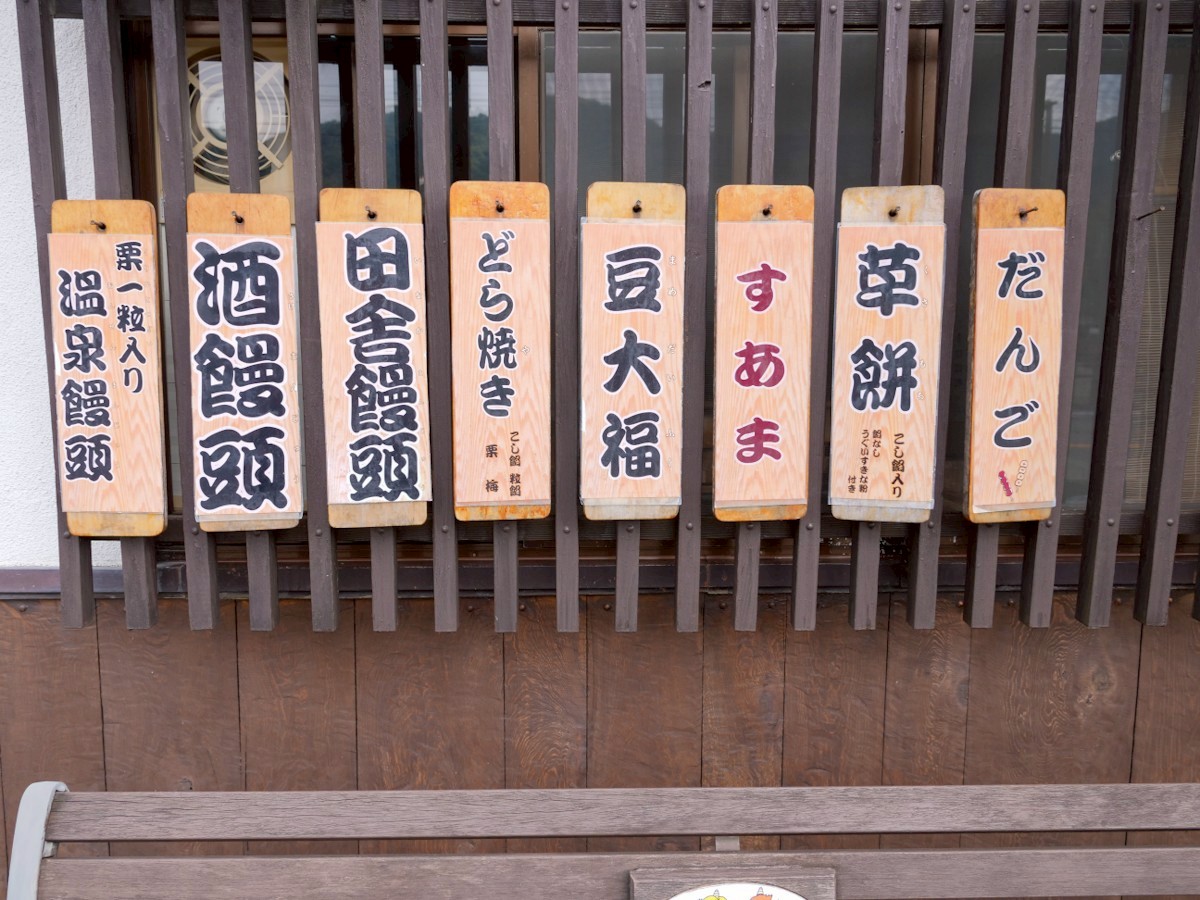 だんご
草餅
こし餡入り
餡なし
うぐいすきな粉
付き
すあま
豆大福
どら焼き
こし餡 粒餡
栗 梅
田舎饅頭
酒饅頭
栗一粒入り
温泉饅頭